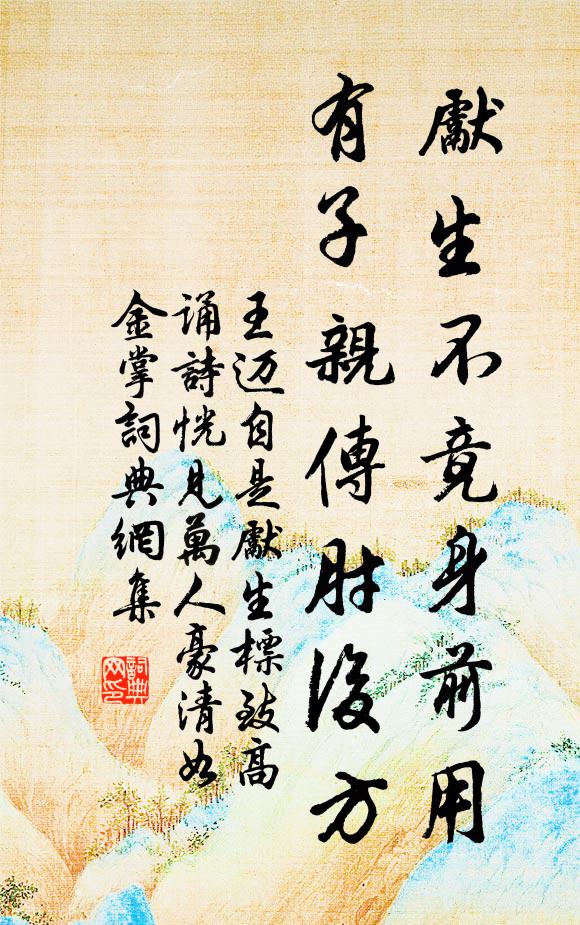 獻生不竟身前用
有子親傳肘後方
王迈自是獻生標致高
誦詩恍見萬人豪清如
金掌詞典網集
詞典
网印